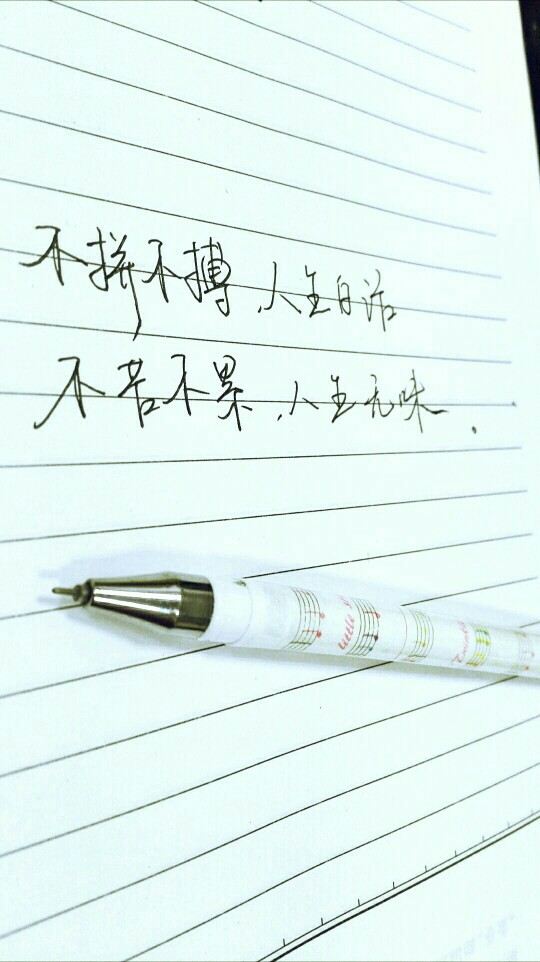 不拼不搏,人生白活
不苦不累,人生无味.